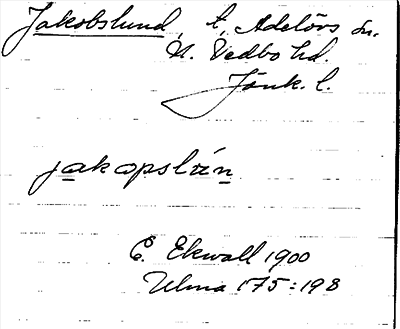 Jakobslund, t, Adelövs sn.
N. Vedbo hd.
Jönk. l.
jakopslún
E. Ekwall 1900
Ulma 175:198